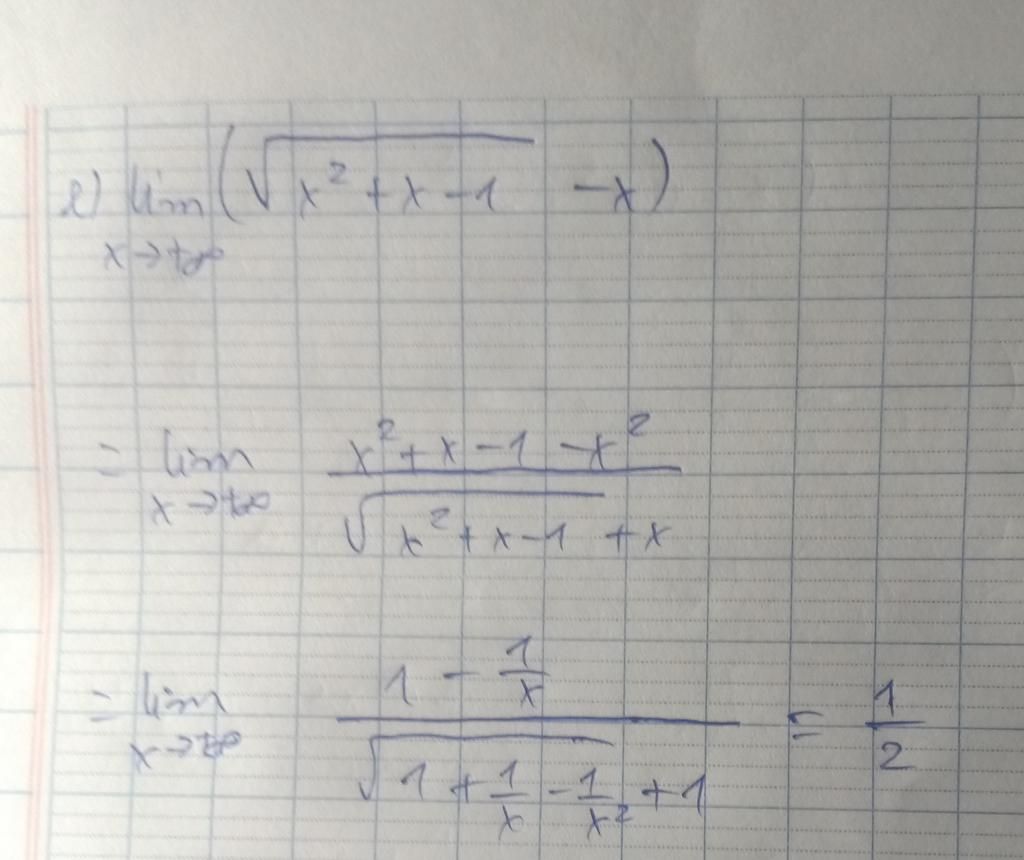 e) lim (√(x² + x - 1) - x)
x→+∞
= lim (x² + x - 1 - x²) / (√(x² + x - 1) + x)
x→+∞
= lim (1 - 1/x) / (√(1 + 1/x - 1/x²) + 1) = 1/2
x→+∞